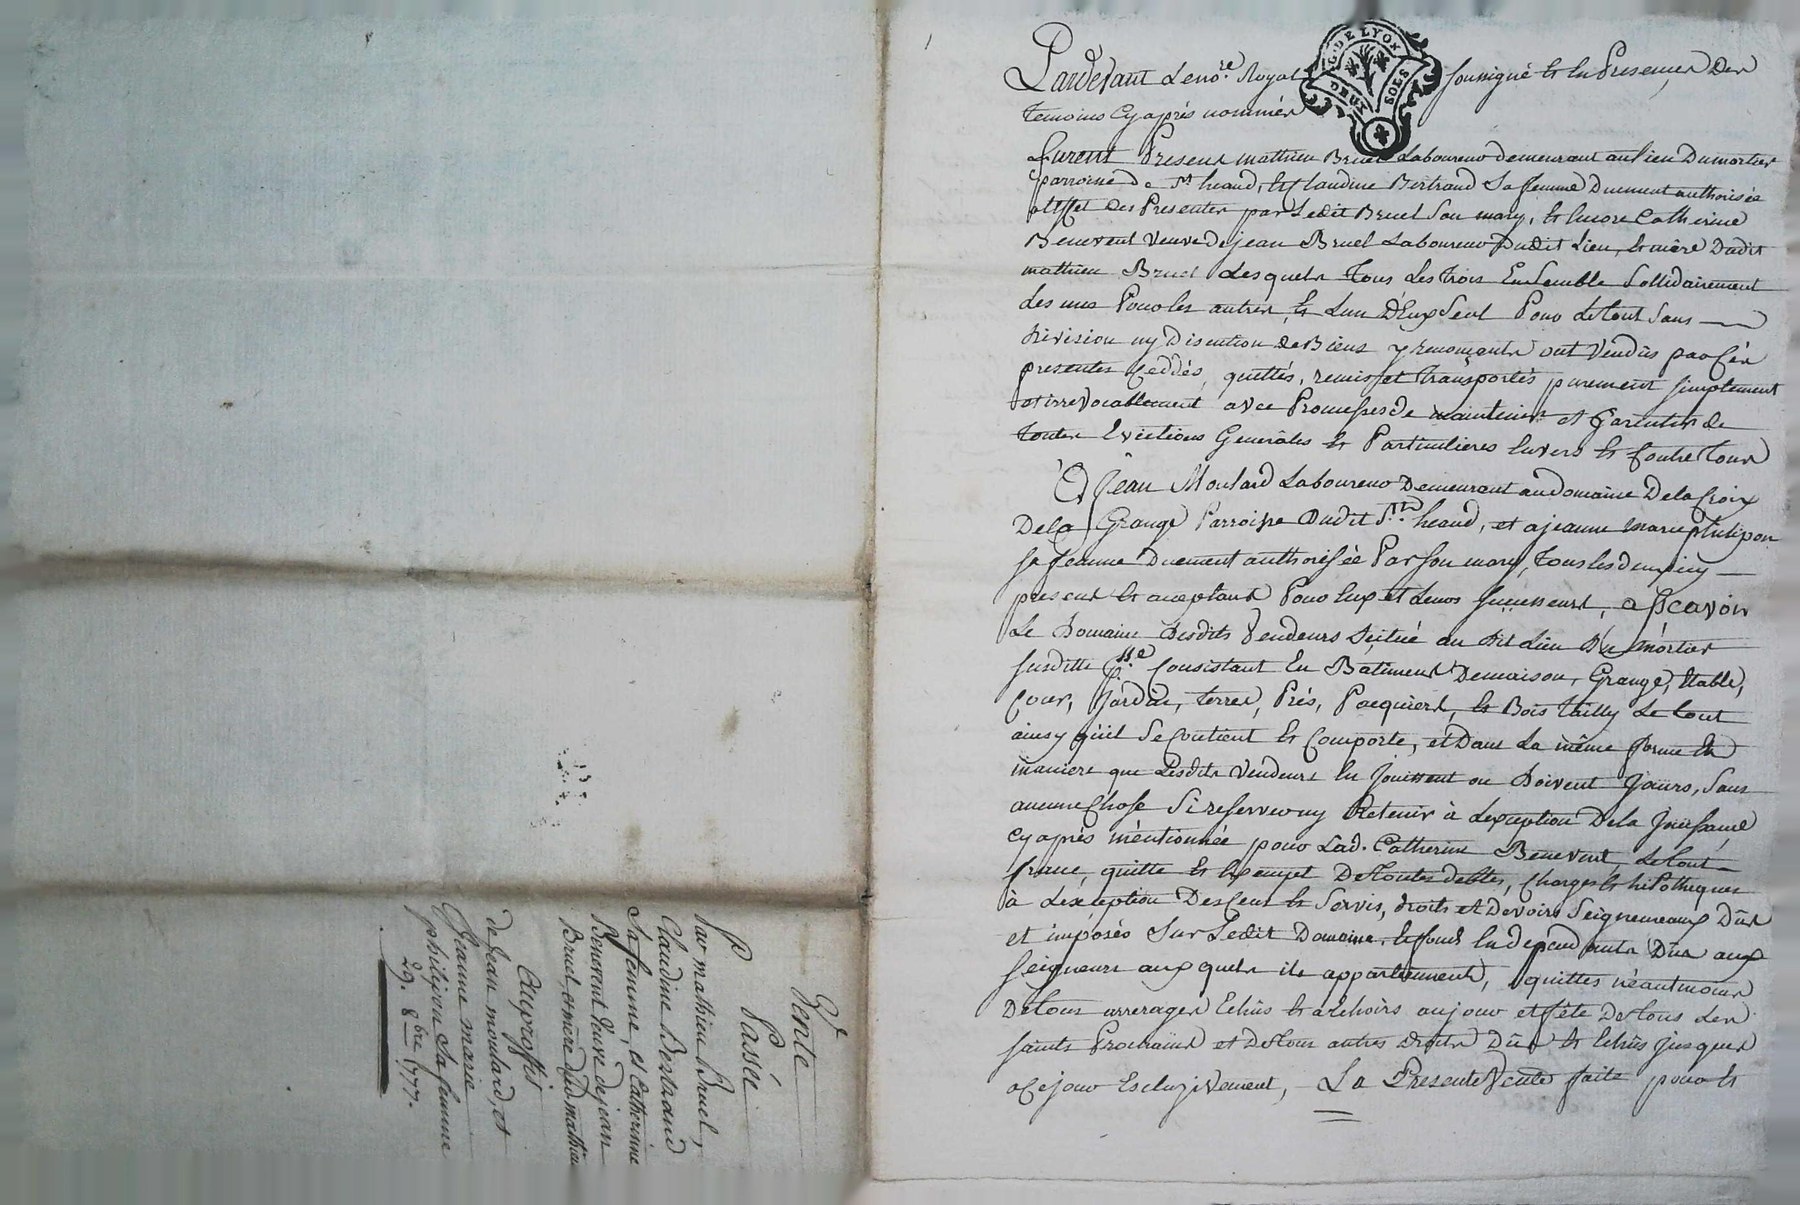 Pardevant Le no.re Royal soussigné & En Presences Des
temoins Cy après nommés
G. DE LYON
DEUX SOLS
furent Presens mathieu Bruel Laboureur demeurant au lieu Dumortier
parroisse de St heand, & Claudine Bertrand Sa femme Duement authorisée
a l'effet des Presentes par Ledit Bruel Son mary, & Encore Catherine
Benevent Veuve De jean Bruel Laboureur Dudit Lieu, & mère Dudit
mathieu Bruel Lesquels Tous Les trois Ensemble Sollidairement
Les uns Pour les autres, & Lun D'Eux Seul Pour Le tout Sans
division ny Discution de Biens y renonçants ont Vendûs par Ces
presentes Ceddés, quittés, remis et transportés purement simplement
et irrevocablement avec Promesses de maintenir et Garentir de
toutes Evictions Generâles & Particulieres Envers & Contre tous
à Jean Moulard Laboureur Demeurant au domaine De la Croix
De la Grange Parroisse Dudit St. heand, et a jeanne marie philipon
sa femme Duement authorisée Par son mary, tous les deux icy
presens & acceptans Pour Eux et Leurs successeurs, a sçavoir
Le Domaine desdits Vendeurs Scitué au dit Lieu Du mortier
susditte P.sse Consistant En Bâtiments De maison, Grange, Etable,
Cour, Jardin, terres, Prés, Pacquiers, & Bois tailly Le tout
ainsy quil Se Contient & Comporte, et Dans La même forme &
maniere que Lesdits Vendeurs En Jouissent ou Doivent Jouirs, Sans
aucune Chose Si reserver ny Retenir à Lexception De la Jouissance
Cy après mentionnée pour Lad. Catherine Benevent, Le tout
franc, quitte & Exempt De toutes debtes, Charges & hipotheques
à Lexception Des Cens & Servis, droits et Devoirs Seigneureaux Dûs
et imposés Sur Ledit Domaine & fonds En dependants Dûs aux
Seigneurs aux quels ils appartiennents, quittes néantmoins
De tous arrerages Echûs & a Echoirs au jour et fête De tous Les
saints Prochains et De tous autres droits Dûs & Echûs jusques
a Ce jour Escluzivement, La Presente Vente faite pour &
Vente
Passée
P
Par mathieu Bruel,
Claudine Bertrand
Sa femme, et Catherine
Benevent Veuve de jean
Bruel, et mère dud. mathieu
au proffit
de Jean moulard, et
Jeanne marie
philipon Sa femme
29. 8bre 1777.